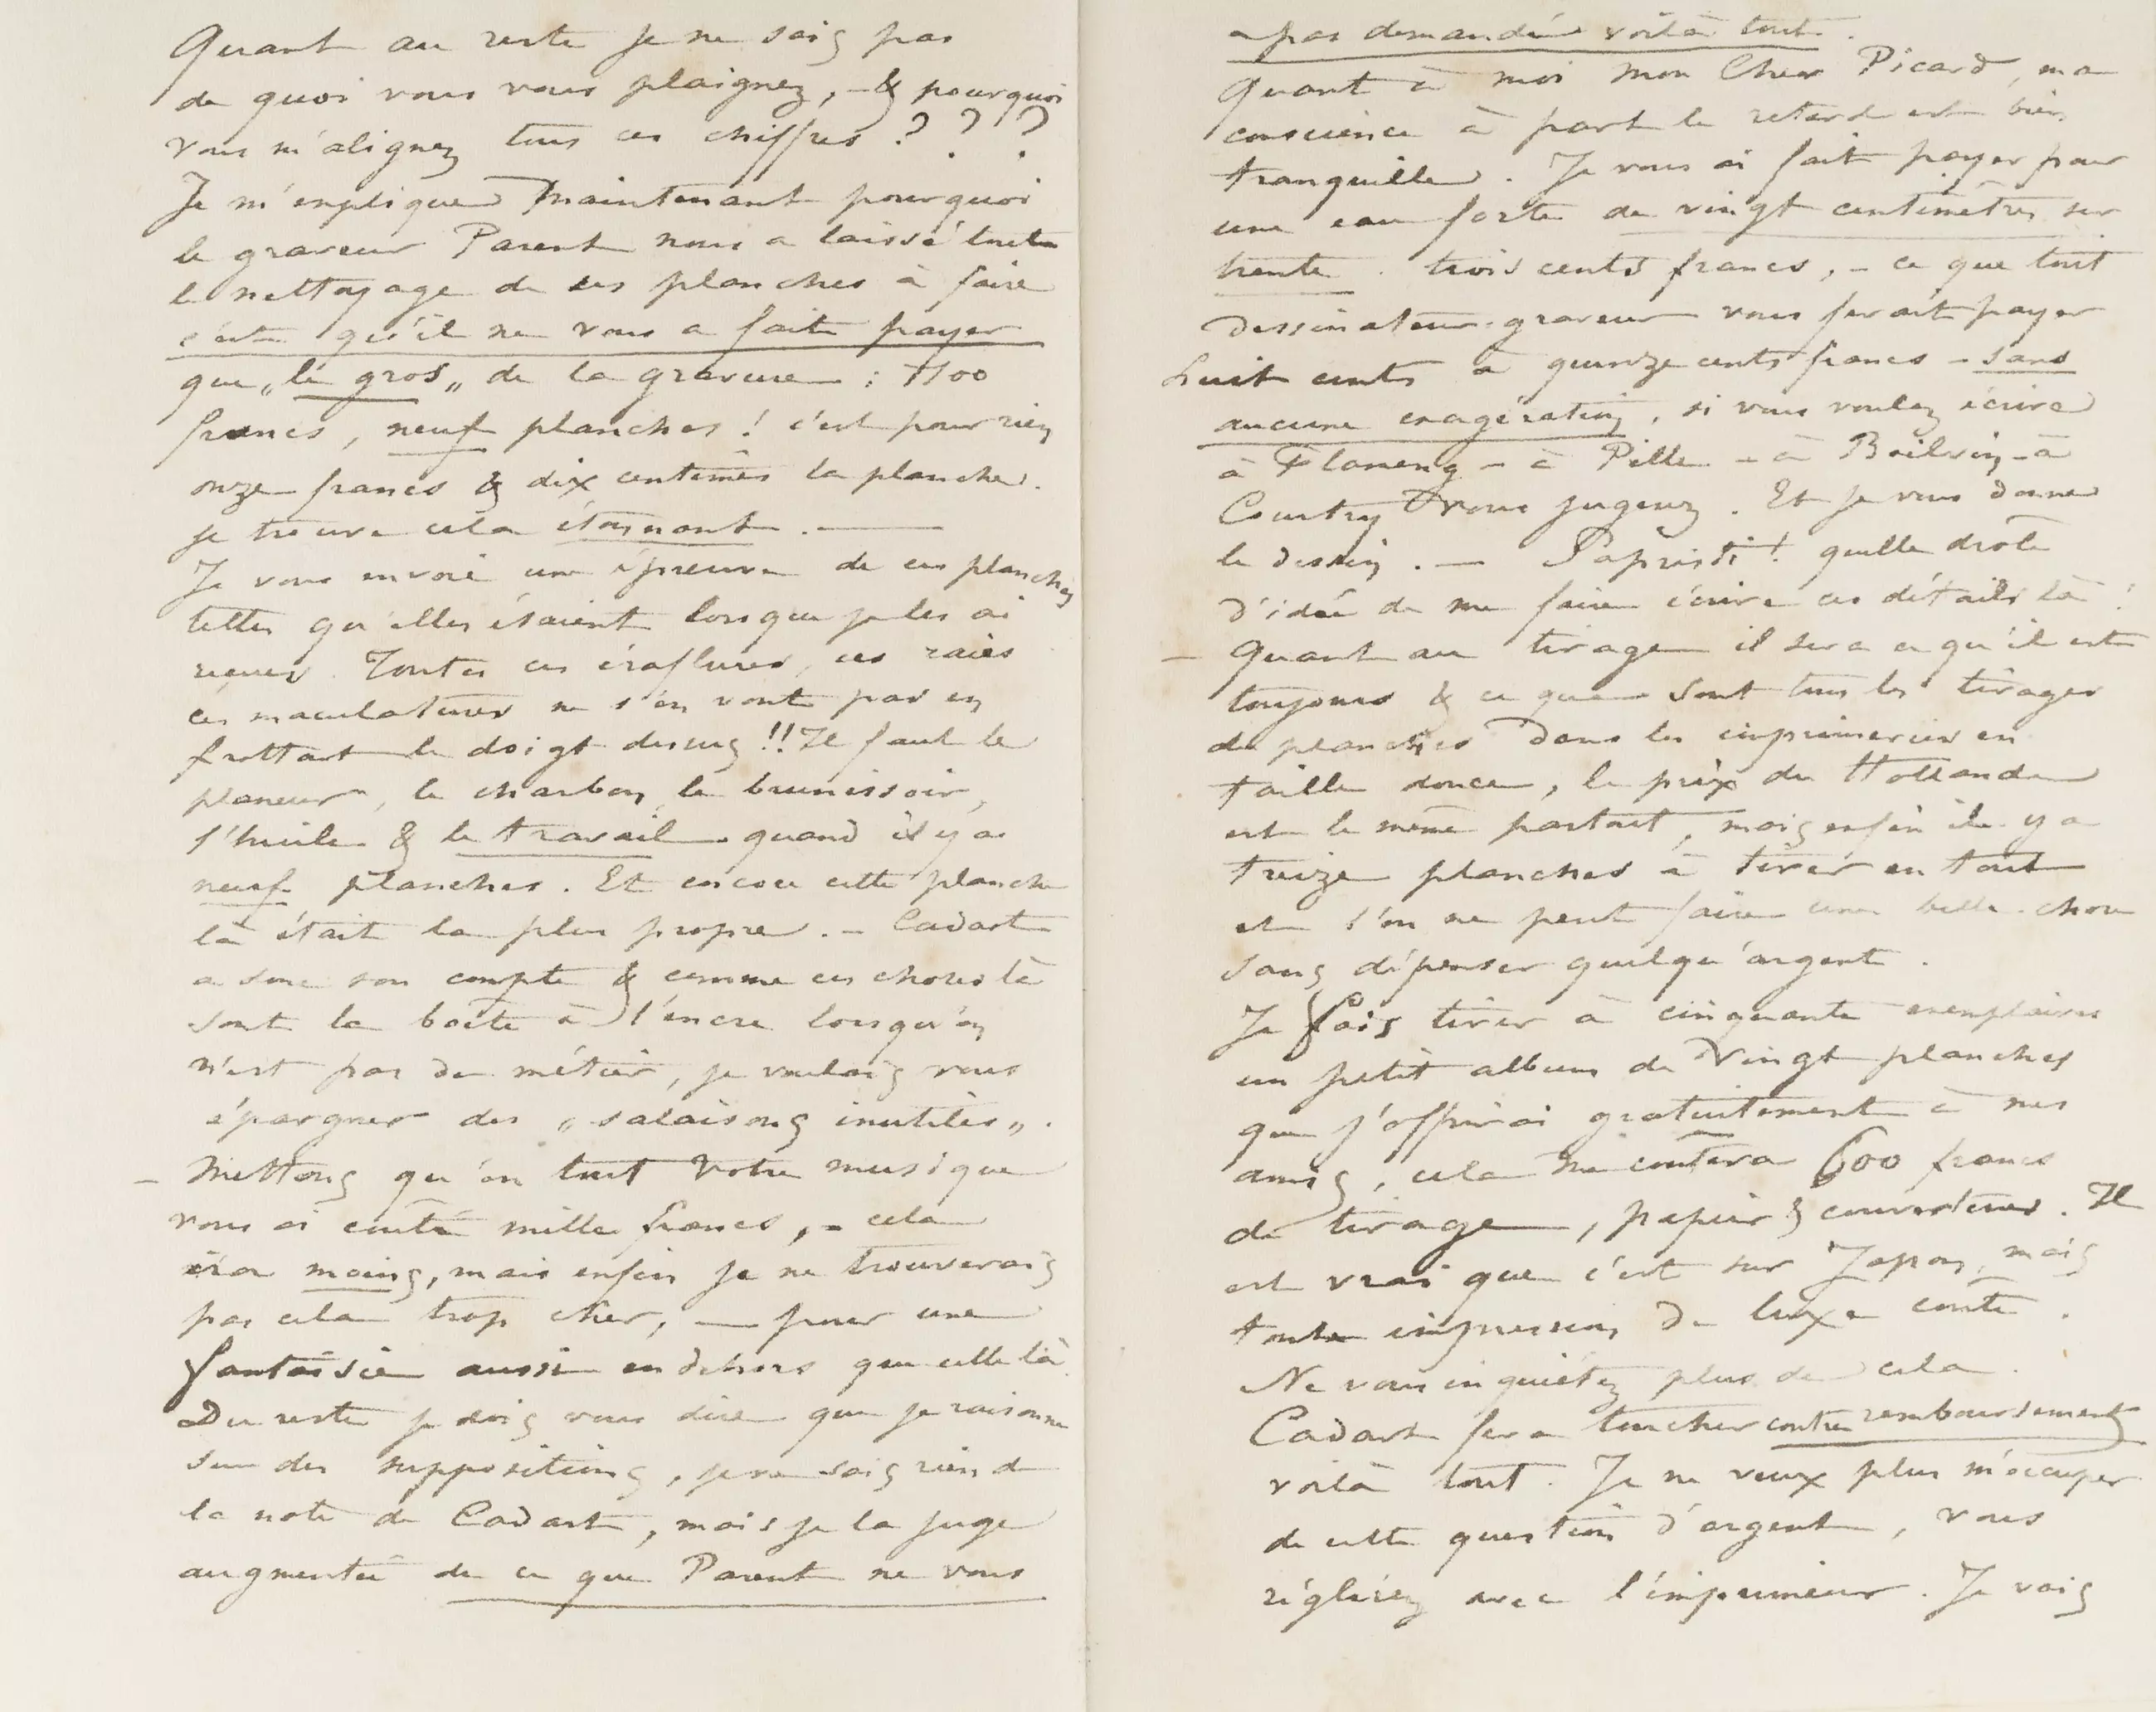 Quant au reste je ne sais pas
de quoi vous vous plaignez, – & pourquoi
vous m'alignez tous ces chiffres ? ? ?
Je m'explique maintenant pourquoi
le graveur Parent nous a laissé tout
le nettoyage de ses planches à faire
c'est qu'il ne vous a fait payer
que „le gros„ de la gravure : 100
francs, neuf planches ! c'est pour rien
onze francs & dix centimes la planche.
je trouve cela étonnant. —
Je vous envoie une épreuve de ces planches
telles qu'elles étaient lorsque je les ai
reçues. Toutes ces éraflures, ces raies
ces maculatures ne s'en vont pas en
frottant le doigt dessus !! Il faut le
planeur, le charbon, le brunissoir,
l'huile & le travail quand il y a
neuf planches. Et encore cette planche
là était la plus propre. – Cadart
a son compte & comme ces choses là
sont la boîte à l'encre lorsqu'on
n'est pas du métier, je voulais vous
épargner des „salaisons inutiles„.
– Mettons qu'en tout votre musique
vous ai coûté mille francs, – cela
ira moins, mais enfin je ne trouverais
pas cela trop cher, — pour une
fantaisie aussi en dehors que celle là.
Du reste je dois vous dire que je raisonne
sur des suppositions, je ne sais rien de
la note de Cadart, mais je la juge
augmentée de ce que Parent ne vous
a pas demandé voilà tout.
Quant à moi mon Cher Picard, ma
conscience à part le retard est bien
tranquille. Je vous ai fait payer pour
une eau forte de vingt centimètres sur
trente. trois cents francs, – ce que tout
dessinateur-graveur vous ferait payer
huit cents à quinze cents francs – sans
aucune exagération, si vous voulez écrire
à Flameng – à Pille – à Boilvin – à
Courtry vous jugerez. Et je vous donne
le dessin. — Sapristi ! quelle drôle
d'idée de me faire écrire ces détails là !
– Quant au tirage il sera ce qu'il est
toujours & ce que sont tous les tirages
de planches dans les imprimeries en
taille douce, le prix du Hollande
est le même partout, mais enfin il y a
treize planches à tirer en tout
et l'on ne peut faire une belle chose
sans dépenser quelqu'argent.
Je fais tirer à cinquante exemplaires
un petit album de vingt planches
que j'offrirai gratuitement à mes
amis, cela me coûtera 600 francs
de tirage, papier & couvertures. Il
est vrai que c'est sur Japon, mais
toute impression de luxe coûte.
Ne vous inquiétez plus de cela.
Cadart fera toucher contre remboursement
voilà tout. Je ne veux plus m'occuper
de cette question d'argent, vous
réglerez avec l'imprimeur. Je vais